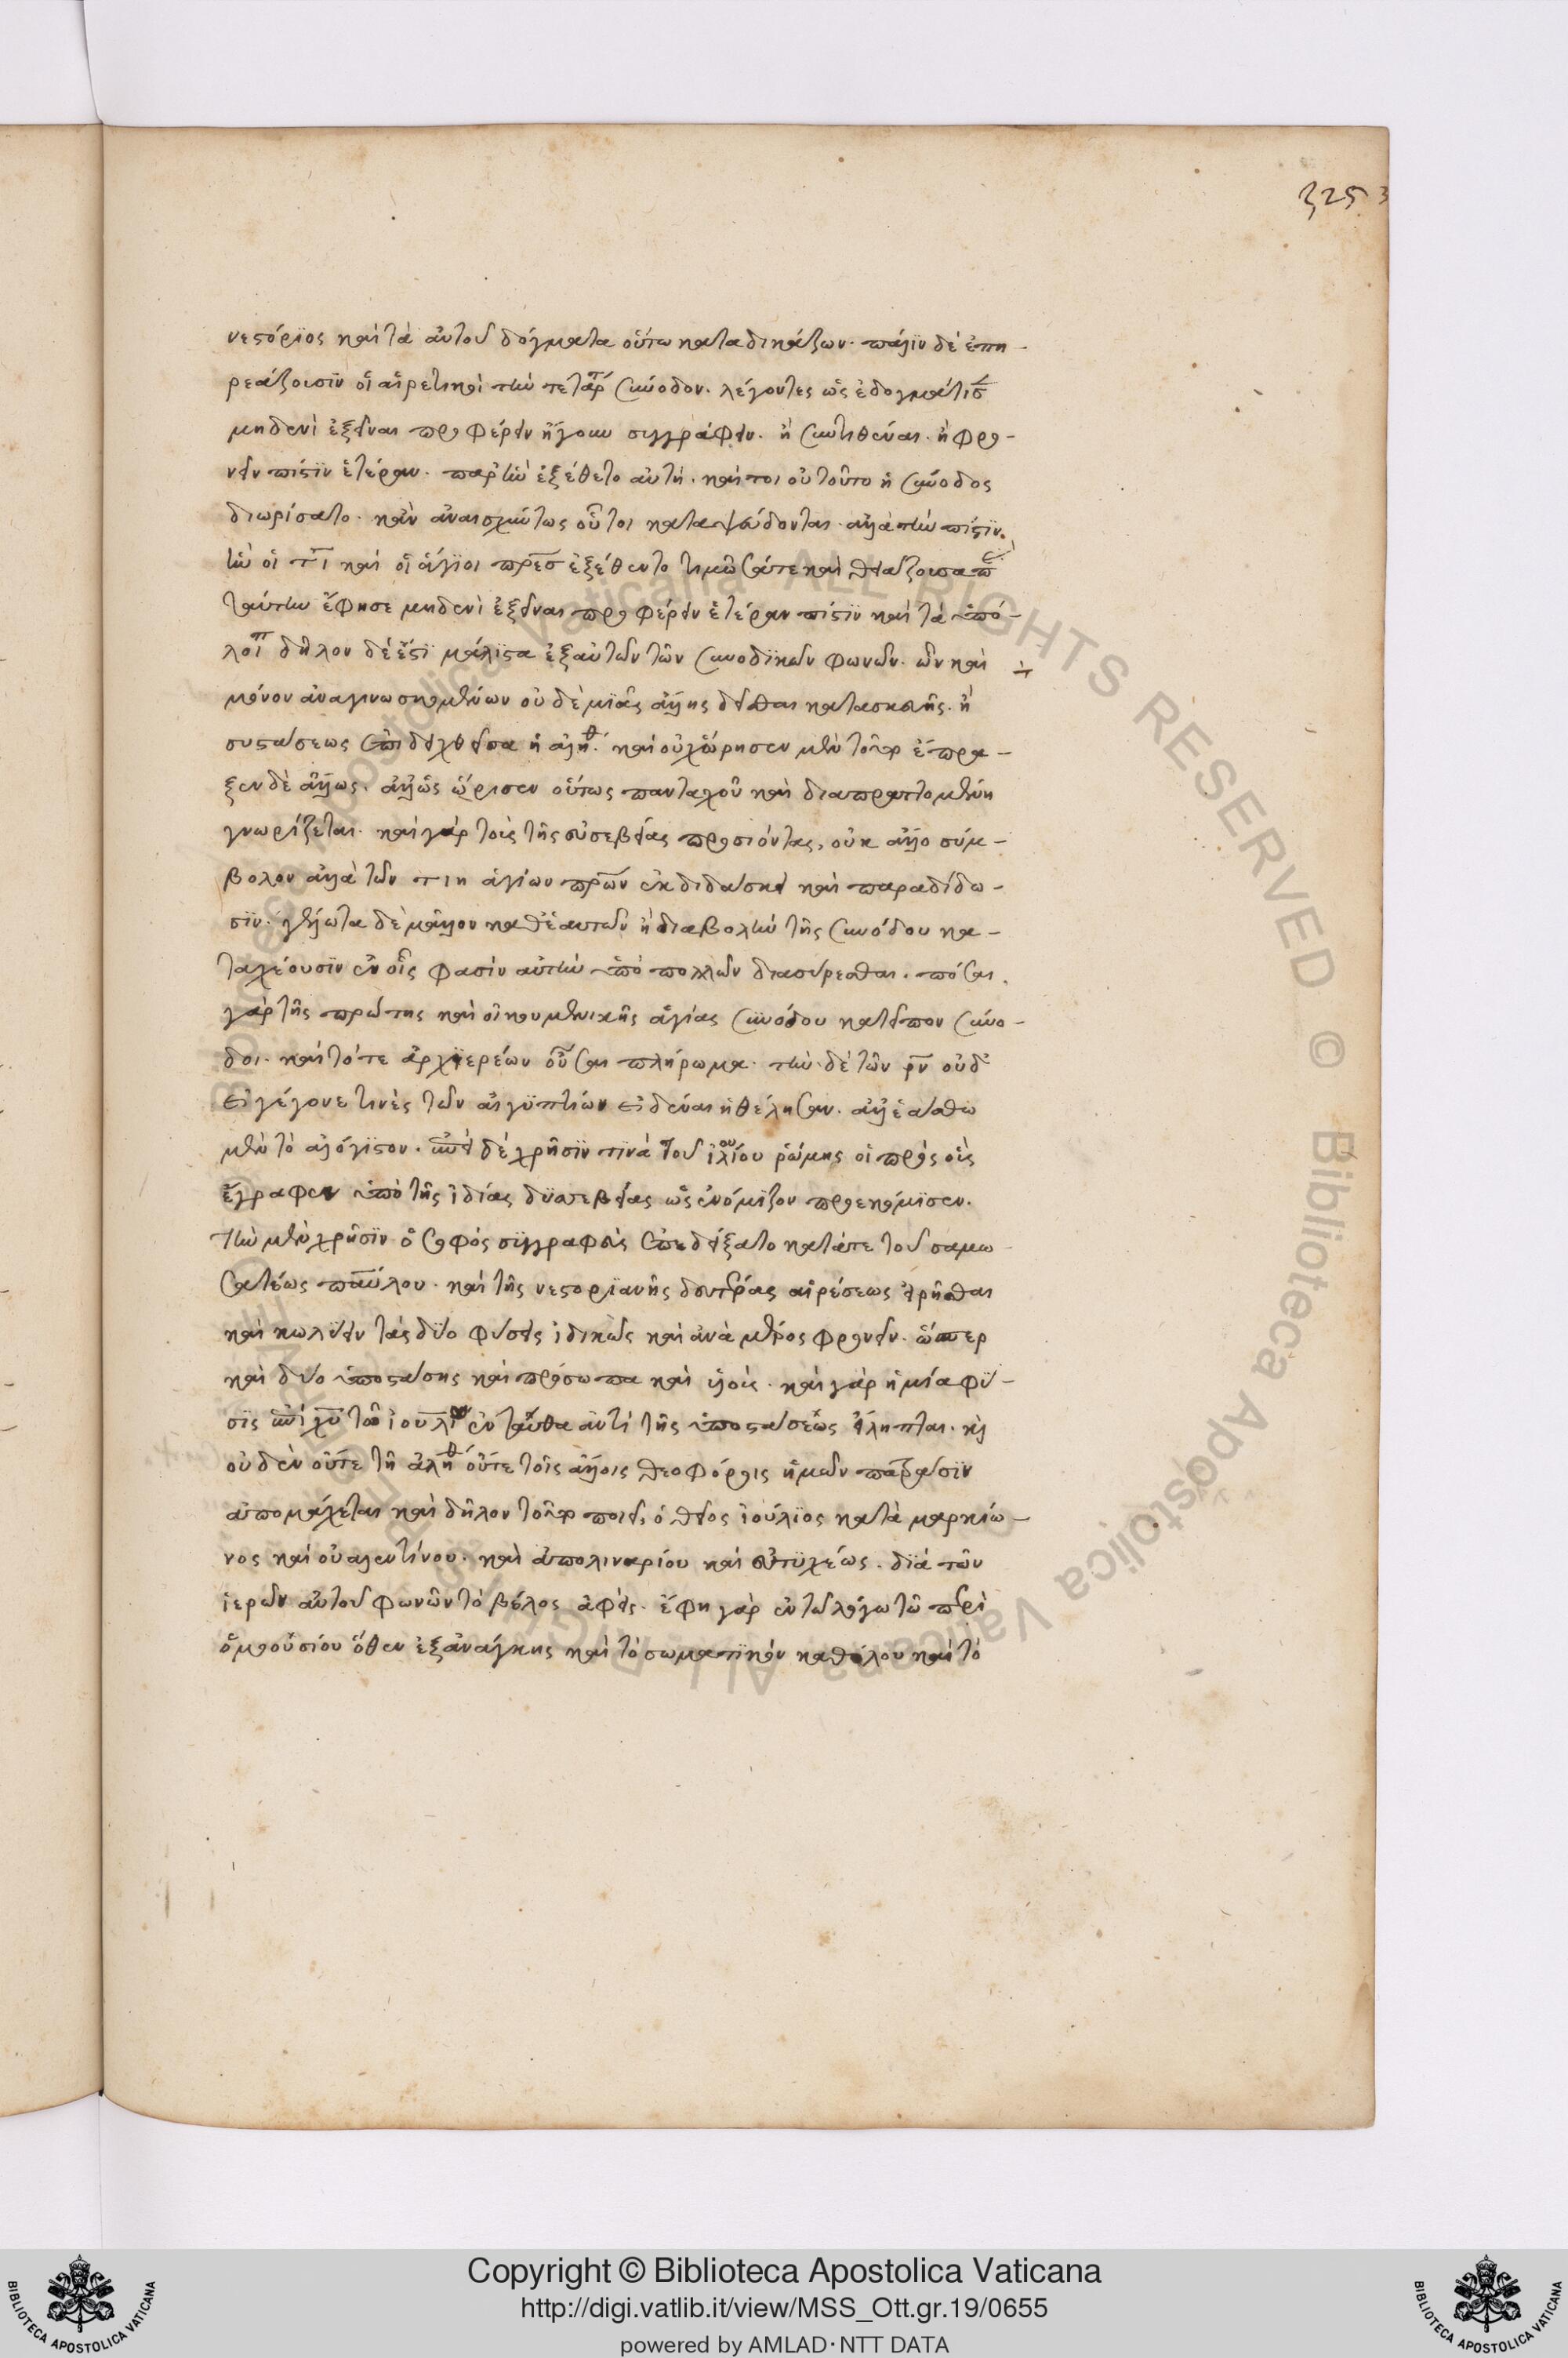 325
νεστόριος καὶ τὰ αὐτοῦ δόγματα οὕτω καταδικάζων. πάλιν δὲ ἐπη-
ρεάζουσιν οἱ αἱρετικοὶ τὴν τετάρτ σύνοδον. λέγοντες ὡς ἐδογμάτισ
μηδενὶ ἐξεῖναι προφέρειν ἤγουν συγγράφειν. ἢ συντιθέναι. ἢ φρο-
νεῖν πίστιν ἑτέραν. παρ' ἣν ἐξέθετο αὐτή. καί τοι οὐ τοῦτο ἡ σύνοδος
διωρίσατο. κἂν ἀναισχύντως οὗτοι καταψεύδονται. ἀλλὰ τὴν πίστιν.
ἣν οἱ τιη καὶ οἱ ἅγιοι πρεσ ἐξέθεντο τιμῶσά τε καὶ
ταύτην ἔφησε μηδενὶ ἐξεῖναι προφέρειν ἑτέραν πίστιν καὶ τὰ ὑπό-
λοιπ δῆλον δέ ἐστι μάλιστα ἐξ αὐτῶν τῶν συνοδικῶν φωνῶν. ὧν καὶ
μόνον ἀναγινωσκομένων οὐδὲ μιᾶς ἄλλης δεῖσθαι κατασκευῆς. ἢ
συστάσεως ἐπιδειχθεῖσα ἡ ἀληθ. καὶ οὐχ ὥρησεν μὲν τοῦτο ἔπρα-
ξεν δὲ ἄλλως. ἀλλ' ὡς ὥρισεν οὕτως πανταχοῦ καὶ διαπραττομένη
γνωρίζεται. καὶ γὰρ τοὺς τῆς εὐσεβείας προσιόντας, οὐκ ἄλλο σύμ-
βολον ἀλλὰ τῶν τιη ἁγίων πρων ἐκδιδάσκει καὶ παραδίδω-
σιν. γέλωτα δὲ μᾶλλον καθ' ἑαυτῶν ἢ διαβολὴν τῆς συνόδου κα-
ταχέουσιν ἐν οἷς φασὶν αὐτὴν ὑπὸ πολλῶν διασύρεσθαι. πόσαι
γὰρ τῆς πρώτης καὶ οἰκουμενικῆς ἁγίας συνόδου κατεῖπον σύνο-
δοι. καὶ τότε ἀρχιερέων οὖσαι πλήρωμα. τὴν δὲ τῶν ρν οὐδ'
εἰ γέγονε τινὲς τῶν αἰγυπτίων εἰδέναι ἠθέλησαν. ἀλλ' ἐάσθω
μὲν τὸ ἀλόγιστον. δὲ χρῆσιν τινὰ τοῦ ἰλίου ῥώμης οἱ πρὸς οὓς
ἔγραφεν ὑπὸ τῆς ἰδίας δυσσεβείας ὡς ἐνόμιζον προεκόμισεν.
τὴν μὲν χρῆσιν ὁ σοφὸς συγγραφεὺς ἐπεδείξατο κατά τε τοῦ σαμω
σατέως παύλου. καὶ τῆς νεστοριανῆς δευτέρας αἱρέσεως εἰρῆσθαι
καὶ κωλύειν τὰς δύο φύσεις ἰδικῶς καὶ ἀνὰ μέρος φρονεῖν. ὥσπερ
καὶ δύο ὑποστάσεις καὶ πρόσωπα καὶ υἱοὺς. καὶ γὰρ ἡ μία φύ-
σις χυ τῶ ἰουλίω ἐνταῦθα ἀντὶ τῆς ὑποστάσεως εἴληπται. καὶ
οὐδὲν οὔτε τῆ ἀληθ οὔτε τοῖς ἄλλοις θεοφόροις ἡμῶν πατράσιν
ἀπομάχεται καὶ δῆλον τοῦτο ποιεῖ, ὁ θεῖος ἰούλιος κατὰ μαρκίω-
νος καὶ οὐαλεντίνου. καὶ ἀπολιναρίου καὶ εὐτυχέως. διὰ τῶν
ἱερῶν αὐτοῦ φωνῶν τὸ βέλος ἀφεὶς. ἔφη γὰρ ἐν τῶ λόγω τῶ περὶ
ὁμοουσίου ὅθεν ἐξ ἀνάγκης καὶ τὸ σωματικὸν καθόλου καὶ τὸ
Biblioteca Apostolica Vaticana ALL RIGHTS RESERVED © Biblioteca Apostolica Vaticana ALL RIGHTS RESERVED
Copyright © Biblioteca Apostolica Vaticana
http://digi.vatlib.it/view/MSS_Ott.gr.19/0655
powered by AMLAD·NTT DATA
BIBLIOTECA APOSTOLICA VATICANA
BIBLIOTECA APOSTOLICA VATICANA